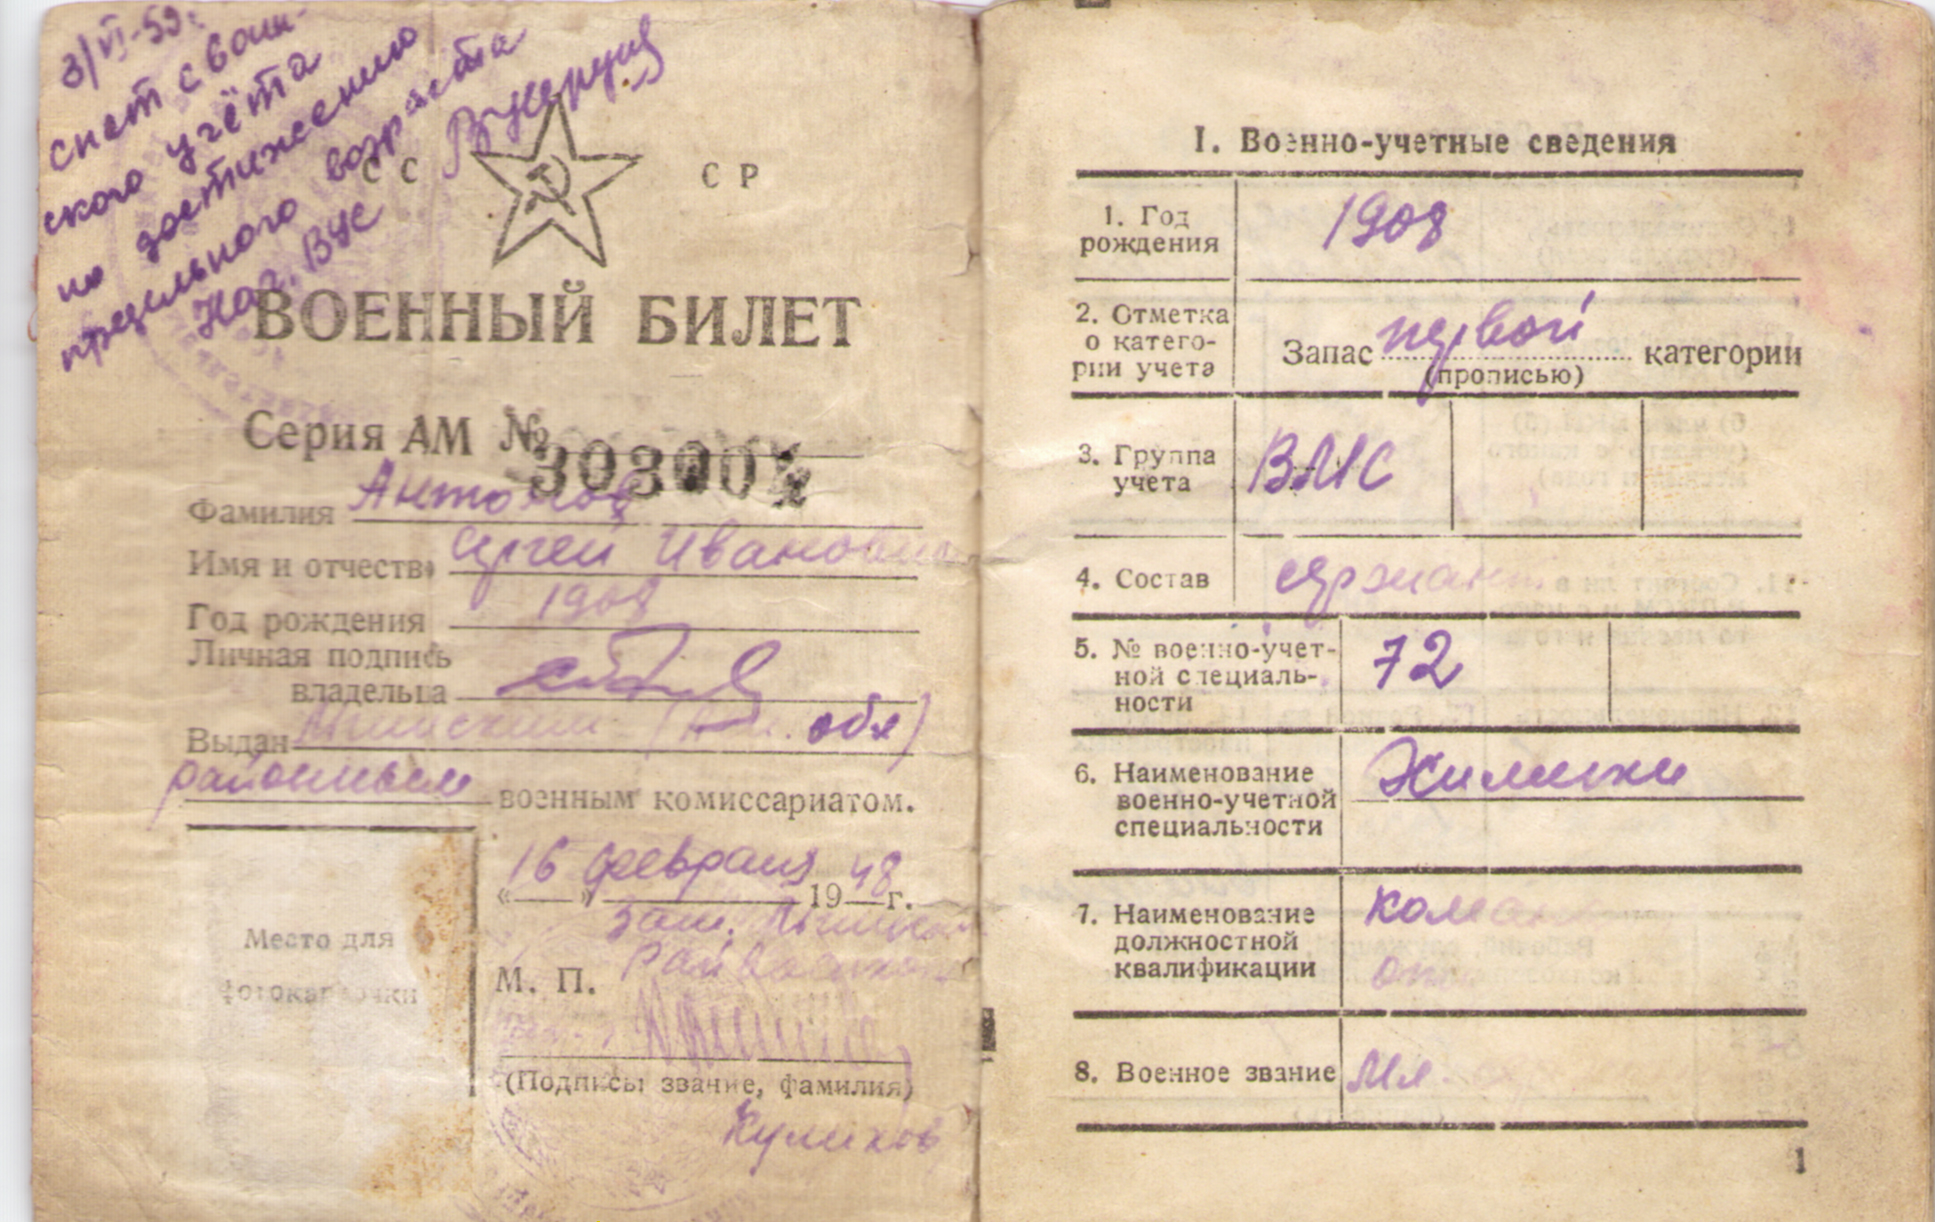 3/VI-59г.
снят с воин-
ского учёта
по достижению
предельного возраста
Нач. ВУС
СС СР
ВОЕННЫЙ БИЛЕТ
Серия АМ №
Фамилия Антонов
Имя и отчество Сергей Иванович
Год рождения 1908
Личная подпись
владельца
Выдан Мгинским ( обл)
районным военным комиссариатом.
«16» февраля 1948 г.
Зам. Мгинск
М. П. Райвоенком
(Подпись, звание, фамилия)
Куликов
Место для
фотокарточки
I. Военно-учетные сведения
1. Год
рождения 1908
2. Отметка
о катего-
рии учета Запас первой категории
(прописью)
3. Группа
учета ВМС
4. Состав сержант
5. № военно-учет-
ной специаль-
ности 72
6. Наименование
военно-учетной
специальности Химики
7. Наименование
должностной
квалификации
8. Военное звание Мл.
1